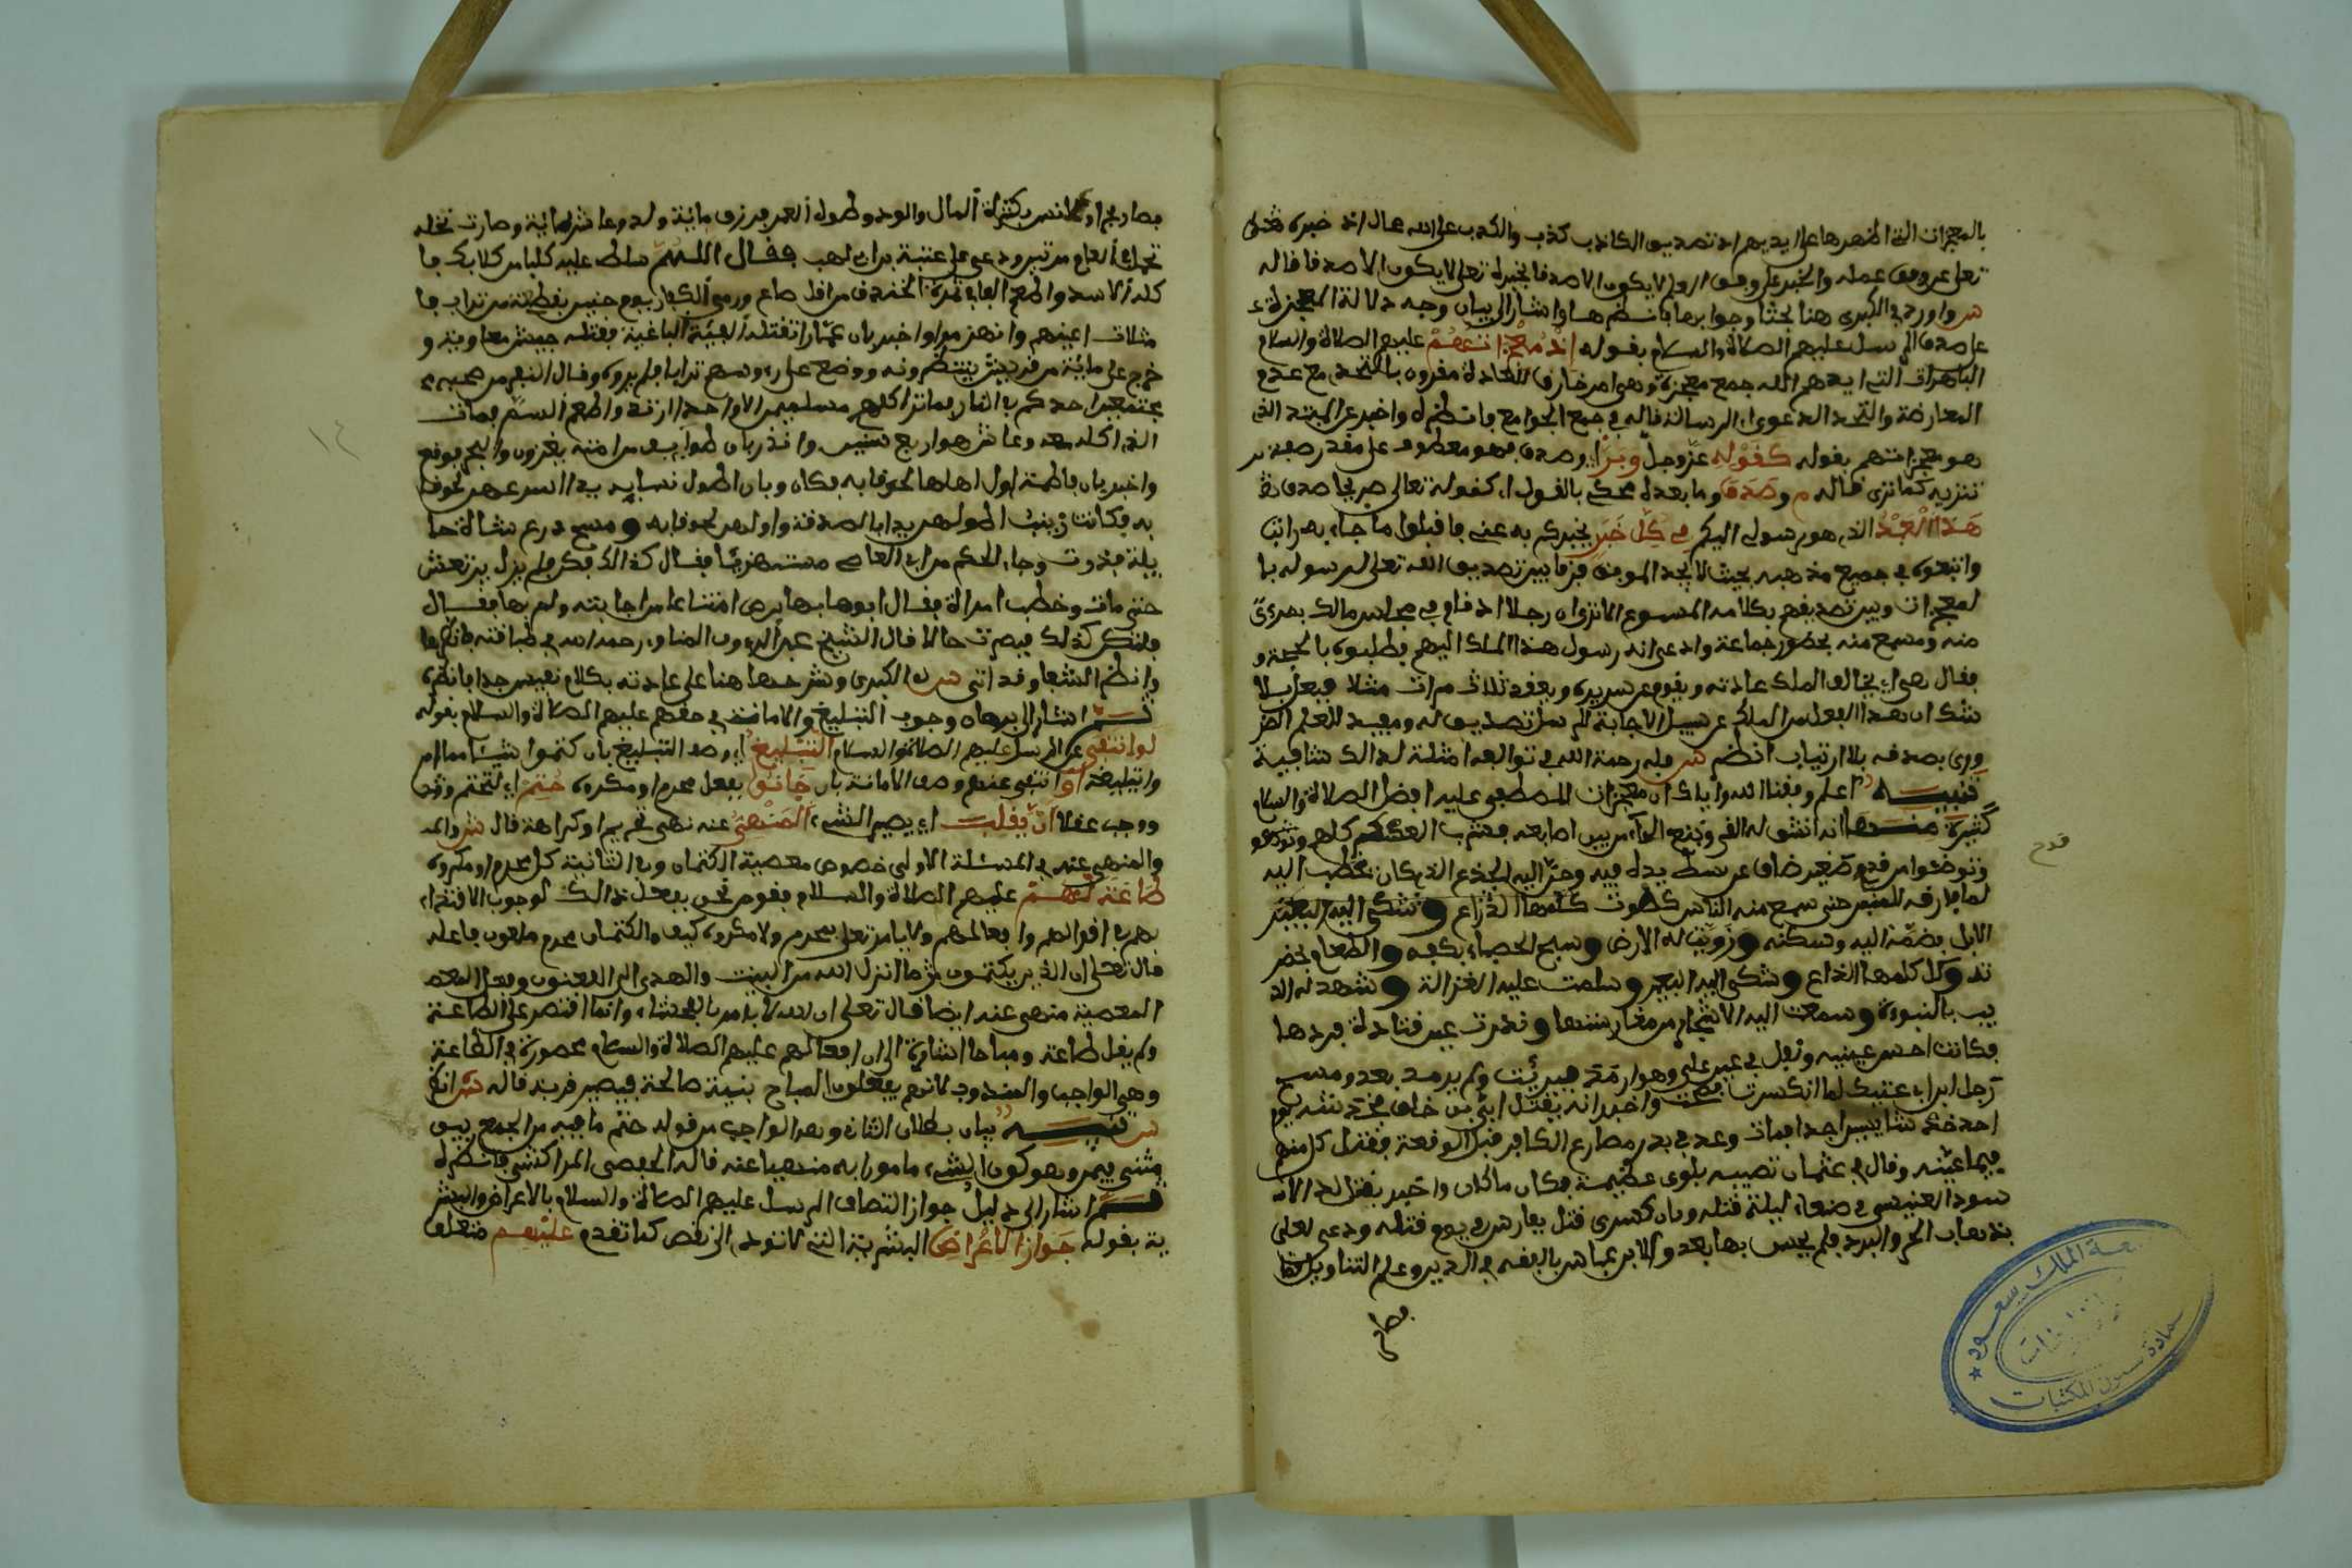 بالمعجزات التي اظهرها على ايديهم اذ تصديق الكاذب كذب والكذب على الله محال اذ خبره
تعلى على وفق علمه والخبر على وفق العلم لا يكون الا صدقا فخبره تعلى لا يكون الا صدقا قاله
س واورد في الكبرى هنا بحثا وجوابها فانظرها واشار الى بيان وجه دلالة المعجزة
على صدق الرسل عليهم الصلاة والسلام بقوله اذ معجزاتهم عليهم الصلاة والسلام
الباهرات التي ايدهم الله جمع معجزة وهي امر خارق للعادة مقرون بالتحدي مع عدم
المعارضة والتحد الدعوى الرسالة قاله في جمع الجوامع فانظره واخبر عن المبتدا الذي
هو معجزاتهم بقوله كقوله عز وجل وبر اي وصدق فهو معطوف على مقدر
كما ترى قاله م وصدق وما بعده محكي بالقول اي كقوله تعالى صريحا صدق
هذا العبد الذي هو رسولي اليكم في كل خبر يخبركم به عني فاقبلوا ما جاء به
واتبعوه في جميع مذهبه بحيث لا يجد الموفق فرقا بين تصديق الله تعلى لرسوله با
لمعجزات وبين تصديقهم بكلامه المسموع الا ترى ان رجلا اذ قام في مجلس مالك بمرءى
منه ومسمع منه بحضور جماعة وادعى انه رسول هذا الملك اليهم فطلبوه بالحجة
فقال هي ان يخالف الملك عادته ويقوم عن سريره ويقعد ثلاث مرات مثلا ففعل فلا
شك ان هذا الفعل من الملك على سبيل الاجابة للرسل تصديق له ومفيد للعلم الضر
وري بصدقه بلا ارتياب انظر س وله رحمة الله في توالفه امثلة لذالك شافية
تنبيه اعلم وفقنا الله واياك ان معجزات المصطفى عليه افضل الصلاة والسلام
كثيرة منها انه انشق له القمر ونبع الماء من بين اصابعه فشرب العسكر كلهم وتوضئو
وتوضئوا من قدح صغير ضاق عن بسط يده فيه وحن اليه الجذع الذي كان يخطب اليه
قدح
لما فارقه للمنبر حتى سمع منه الناس كصوت كلمها الذراع وشكى اليه البعير
الابل فضمه اليه وسكنه وزويت له الارض وسبح الحصباء بكفه والطعام بحضر
ته وكل كلمها الذراع وشكى اليه البعير وسلمت عليه الغزالة وشهد له الذ
يب بالنبوة وسمعت اليه الاشجار من مغارسها وندرت عين قتادة فردها
فكانت احسن عينيه وتفل في عين علي وهو ارمد فبرئت ولم يرمد بعد ومسح
رجل ابن ابي عتيك لما انكسرت فصحت واخبر انه يقتل ابي بن خلف فخدشه يوم
احد خدشا يسيرا جدا فمات وعد في بدر مصارع الكافرين قبل الوقعة فقتل كل منهم
فيما عينه وقال في عثمان تصيبه بلوى عظيمة فكان ما كان واخبر بقتل الا
سود العنيسي في صنعاء ليلة قتله وبان كسرى قتل بفارس في يوم قتله ودعى لعلي
بذهاب الحر والبرد فلم يحس بها بعد ولابن عباس بالفقه في الدين وعلم التاويل
فصار
فصار بحرا ولانس بكثرة المال والولد وطول العمر فرزق مائة ولد وعاش مائة وصارت نخله
تحمل في العام مرتين ودعى على عتبة بن ابي لهب فقال اللهم سلط عليه كلبا من كلابك فا
كله الاسد واطعم الف في غزوة الخندق من اقل صاع ورمى الكفار يوم حنين بقبضة من تراب فا
متلات اعينهم وانهزموا واخبر بان عمارا تقتله الفئة الباغية فقتله جيش معاوية و
خرج على مائة من قريش ينتظرونه ووضع على رءوسهم ترابا فلم يروه وقال لنفر من صحبه
احدكم في النار فماتوا كلهم مسلمين الا واحد ارتد واطعم السم فمات
الذي اكله معه وعاش هو اربع سنين وانذر بان طوايف من امته يغزون في البحر فوقع
واخبر بان فاطمة اول اهلها لحوقا به فكان وبان اطول نسايه يدا اسرعهن لحوقا
به فكانت زينب اطولهن يدا بالصدقة واولهن لحوقا به ومسح درع شاة حا
يلة فدرت وجاء الحكم بن ابي العاصي مستهزئا فقال كذالك فكن فلم يزل يرتعش
حتى مات وخطب امراة فقال ابوها بها برص امتناعا من اجابته ولم بها فقال
فلتكن كذلك فبرصت حالا قال الشيخ عبد الرءوف المناوي رحمه الله في طبقاته فانظرها
وانظر الشفا وقد اتى س في الكبرى وشرحها هنا على عادته بكلام نفيس جدا فانظره
ثم اشار الى برهان وجوب التبليغ والامانة في حقهم عليهم الصلاة والسلام بقوله
لو انتفى عن الرسل عليهم الصلاة والسلام التبليغ اي وصف التبليغ بان كتموا شيئا مما امر
وا بتبليغه او انتفى عنهم وصف الامانة بان خانوا بفعل محرم او مكروه حتم اي لتحتم
ووجب عقلا ان يقلب اي يصير الشيء المنهي عنه نهي تحريم او كراهة قال س والمر
والمنهي عنه في المسئلة الاولى خصوص معصية الكتمان وفي الثانية كل محرم او مكروه
طاعة لهم عليهم الصلاة والسلام فنومر نحن بفعل ذالك لوجوب الاقتداء
بهم في اقوالهم وافعالهم ولا يامر تعلى بمحرم ولا مكروه كيف والكتمان محرم ملعون فاعله
قال تعلى ان الذين يكتمون ما انزل الله من البينت والهدى الى اللعنون وفعل
المعصية منهي عنه ايضا قال تعلى ان الله لا يامر بالفحشاء وانما اقتصر على الطاعة
ولم يقل طاعة ومباحا اشارة الى ان افعالهم عليهم الصلاة والسلام محصورة في الطاعة
وهي الواجب والمندوب لانهم يفعلون المباح بنية صالحة فيصير قربة قاله س
س تنبيه بيان بطلان الثاني وهو الواجب من قوله حتم ما فيه من الجمع بين
متنافيين وهو كون الشيء مامورا به منهيا عنه قاله الحفصي المراكشي فانظره
ثم اشار الى دليل جواز اتصاف الرسل عليهم الصلاة والسلام بالاعراض البشر
ية بقوله جواز الاعراض البشرية التي لا تودي الى نقص كما تقدم عليهم متعلق
١٤
جامعة الملك سعود
عمادة شؤون المكتبات